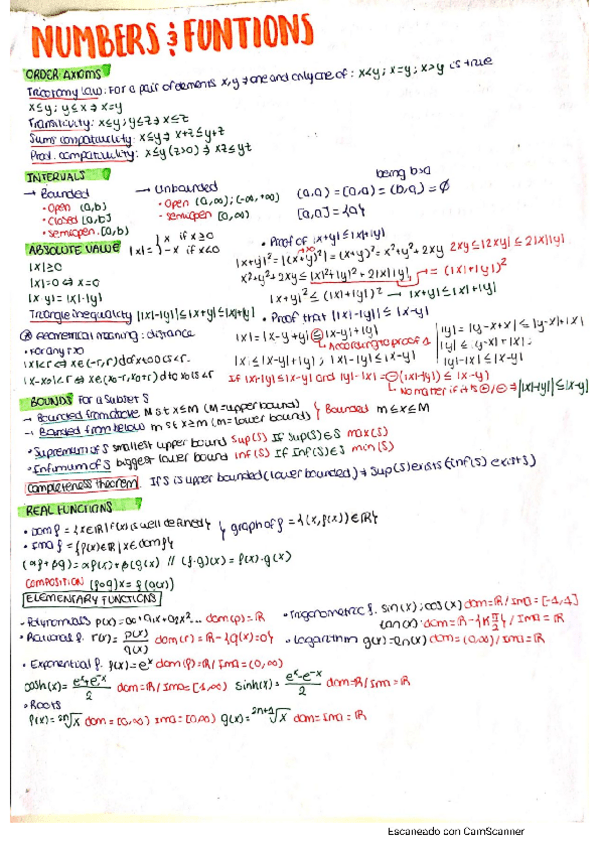 NUMBERS & FUNTIONS
ORDER AXIOMS
Tricotomy law: For a pair of elements x,y ⇒ one and only one of: x<y; x=y; x>y is true
x≤y; y≤x ⇒ x=y
Transitivity: x≤y; y≤z ⇒ x≤z
Sums compatibility: x≤y ⇒ x+z≤y+z
Prod. compatibility: x≤y (z>0) ⇒ xz≤yz
INTERVALS
being b>a
→ Bounded
→ Unbounded
(a,a) = [a,a) = (b,a) = ∅
• Open (a,b)
• Open (a,∞); (-∞,+∞)
[a,a] = {a}
• Closed [a,b]
• semiopen [a,∞)
• semiopen [a,b)
ABSOLUTE VALUE |x| = { x if x≥0
-x if x<0
|x|≥0
|x|=0 ⇔ x=0
|x·y|=|x|·|y|
Triangle inequality ||x|-|y||≤|x+y|≤|x|+|y|
Geometrical meaning: distance
• For any r>0
|x|<r ⇔ x∈(-r,r) d of x to 0 is <r.
|x-x₀|<r ⇔ x∈(x₀-r,x₀+r) d to x₀ is <r
• Proof of |x+y|≤|x|+|y|
|x+y|² = |(x+y)²| = (x+y)² = x²+y²+2xy 2xy≤|2xy|≤2|x||y|
x²+y²+2xy≤|x|²+|y|²+2|x||y| = (|x|+|y|)²
|x+y|² ≤ (|x|+|y|)² → |x+y|≤|x|+|y|
• Proof that ||x|-|y||≤|x-y|
|x|=|x-y+y|≤|x-y|+|y|
According to proof 1
|x|≤|x-y|+|y|; |x|-|y|≤|x-y|
|y|=|y-x+x|≤|y-x|+|x|
|y|≤|y-x|+|x|;
|y|-|x|≤|x-y|
If |x|-|y|≤|x-y| and |y|-|x|=-(|x|-|y|)≤|x-y|
No matter if it is ⊕/⊖ ⇒ ||x|-|y||≤|x-y|
BOUNDS For a subset S
→ Bounded from above M s.t x≤M (M=upper bound)
→ Bounded from below m s.t x≥m (m=lower bound)
} Bounded m≤x≤M
• Supremum of S smallest upper bound Sup(S) If Sup(S)∈S max(S)
• Infimum of S biggest lower bound inf(S) If Inf(S)∈S min(S)
Completeness theorem If S is upper bounded (lower bounded) ⇒ Sup(S) exists (inf(S) exists)
REAL FUNCTIONS
• Dom f = {x∈ℝ | f(x) is well defined}
• Ima f = {f(x)∈ℝ | x∈dom f}
} graph of f = {(x,f(x))∈ℝ}
(αf+βg) = αf(x)+βg(x) // (f·g)(x) = f(x)·g(x)
COMPOSITION (f∘g)x = f(g(x))
ELEMENTARY FUNCTIONS
• Polynomials p(x)=a₀+a₁x+a₂x²... dom(p)=ℝ
• Trigonometric f. sin(x); cos(x) dom=ℝ/Ima=[-1,1]
tan(x) dom=ℝ-{kπ/2} / Ima=ℝ
• Rational f. r(x)= p(x)/q(x) dom(r)=ℝ-{q(x)=0}
• Logarithm g(x)=ln(x) dom=(0,∞)/Ima=ℝ
• Exponential f. f(x)=eˣ dom(f)=ℝ/Ima=(0,∞)
cosh(x)= eˣ+e⁻ˣ/2 dom=ℝ/Ima=[1,∞) sinh(x)= eˣ-e⁻ˣ/2 dom=ℝ/Ima=ℝ
• Roots
f(x)=²ⁿ√x dom=[0,∞) ima=[0,∞) g(x)=²ⁿ⁺¹√x dom=Ima=ℝ
Escaneado con CamScanner